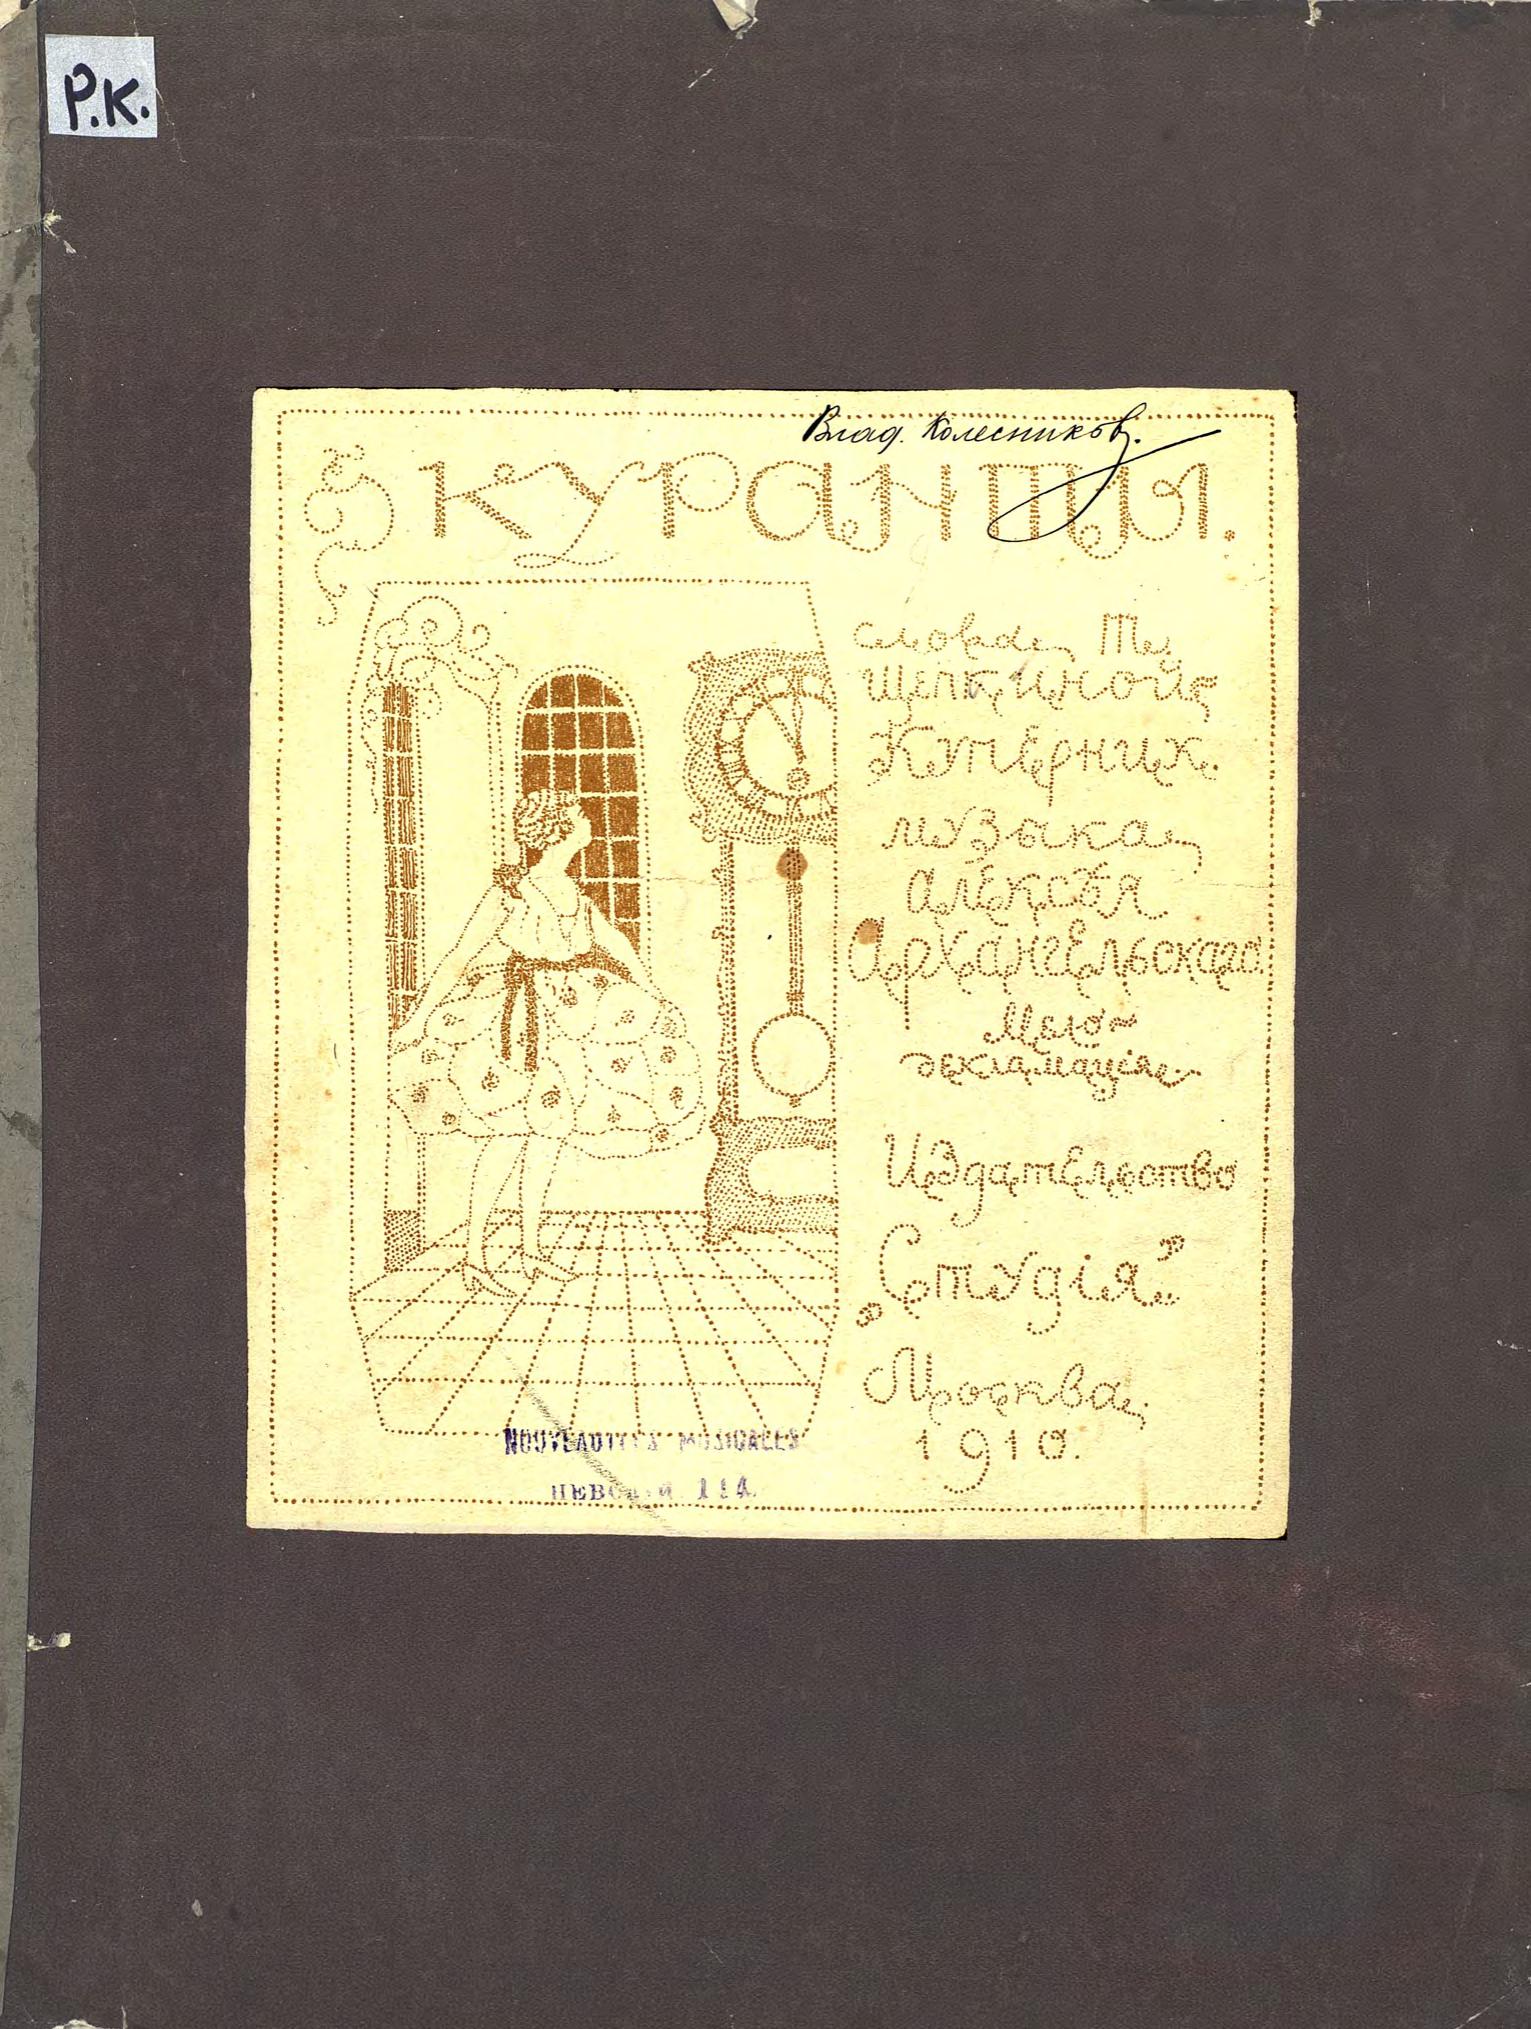 Р.К.
Влад. Колесниковъ.
КУРАНТЫ.
слова Т.
ЩЕПКИНОЙ-
КУПЕРНИК.
МУЗЫКА
АЛЕКСѢЯ
АРХАНГЕЛЬСКАГО
Мело-
декламація
ИЗДАТЕЛЬСТВО
„Студія"
Москва
1910.
NOUVEAUTÉS MUSICALES
НЕВСКІЙ 114.